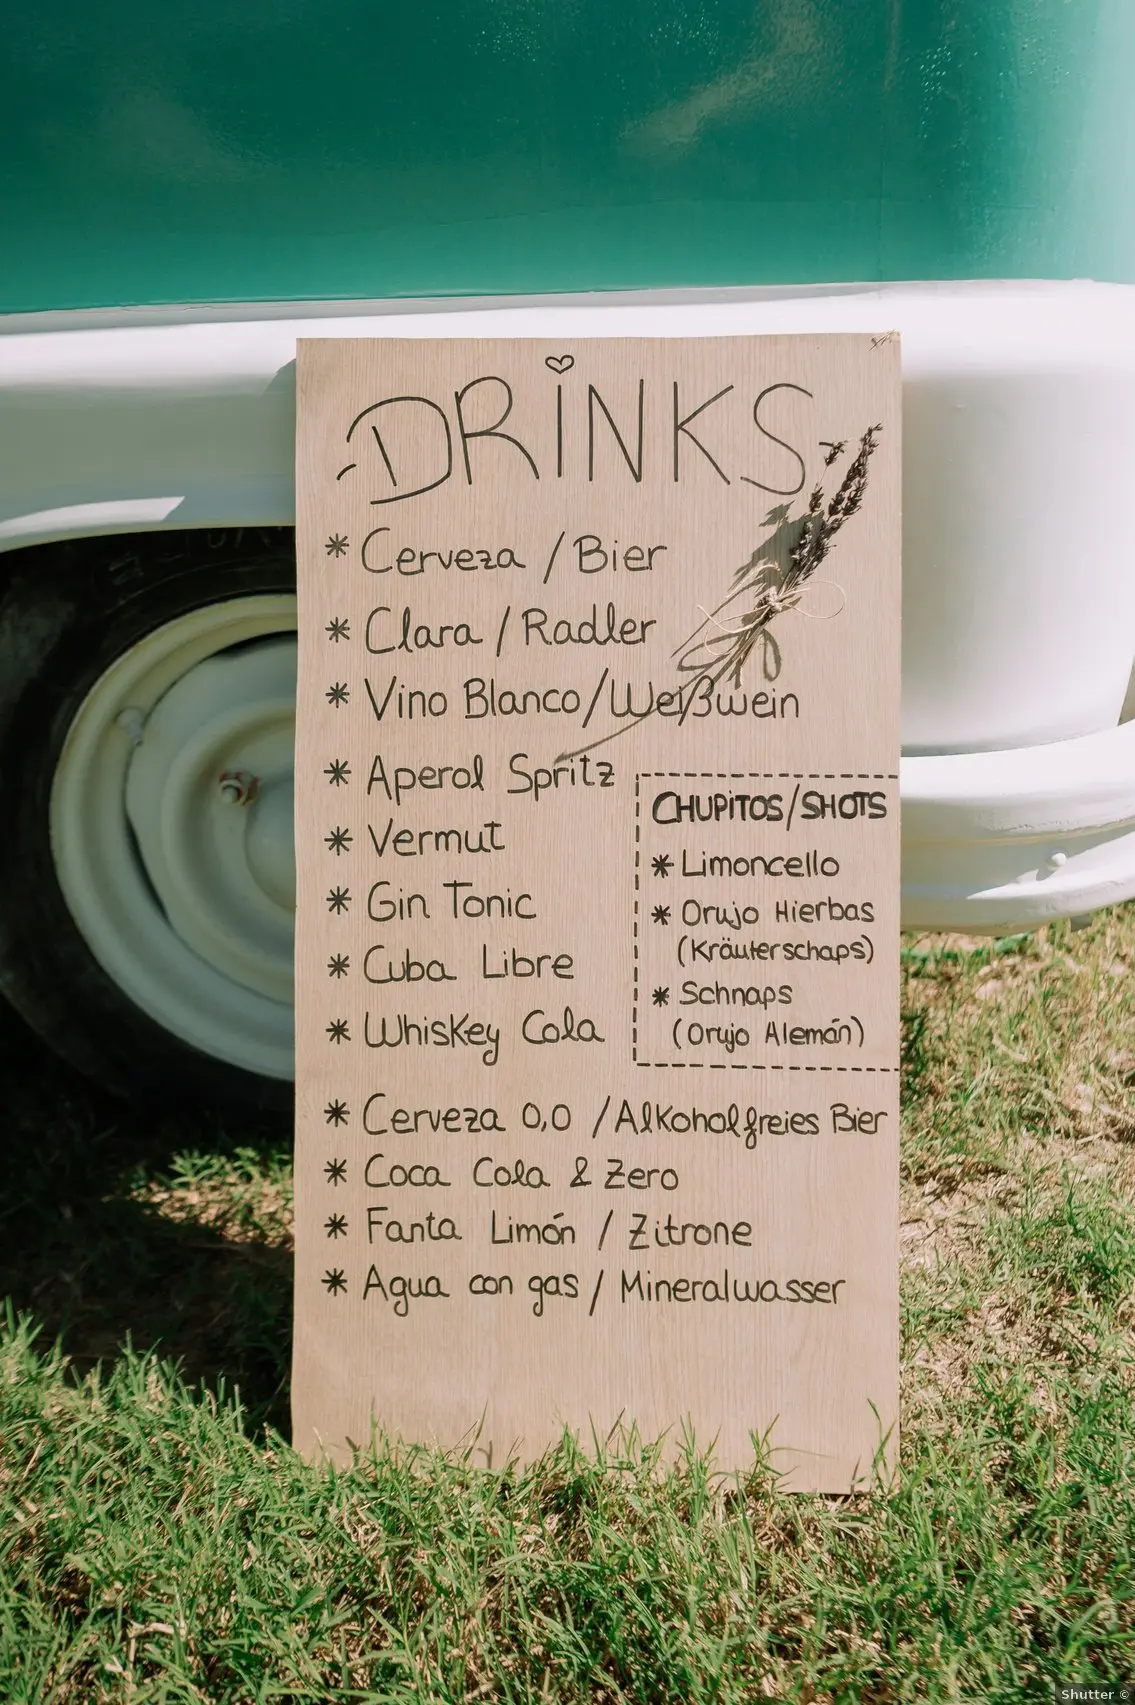 DRiNKS
* Cerveza / Bier
* Clara / Radler
* Vino Blanco / Weißwein
* Aperol Spritz
* Vermut
* Gin Tonic
* Cuba Libre
* Whiskey Cola
CHUPiTOS/SHOTS
* Limoncello
* Orujo Hierbas
(Kräuterschaps)
* Schnaps
(Orujo Alemán)
* Cerveza 0,0 / Alkoholfreies Bier
* Coca Cola & Zero
* Fanta Limón / Zitrone
* Agua con gas / Mineralwasser
Shutter ©